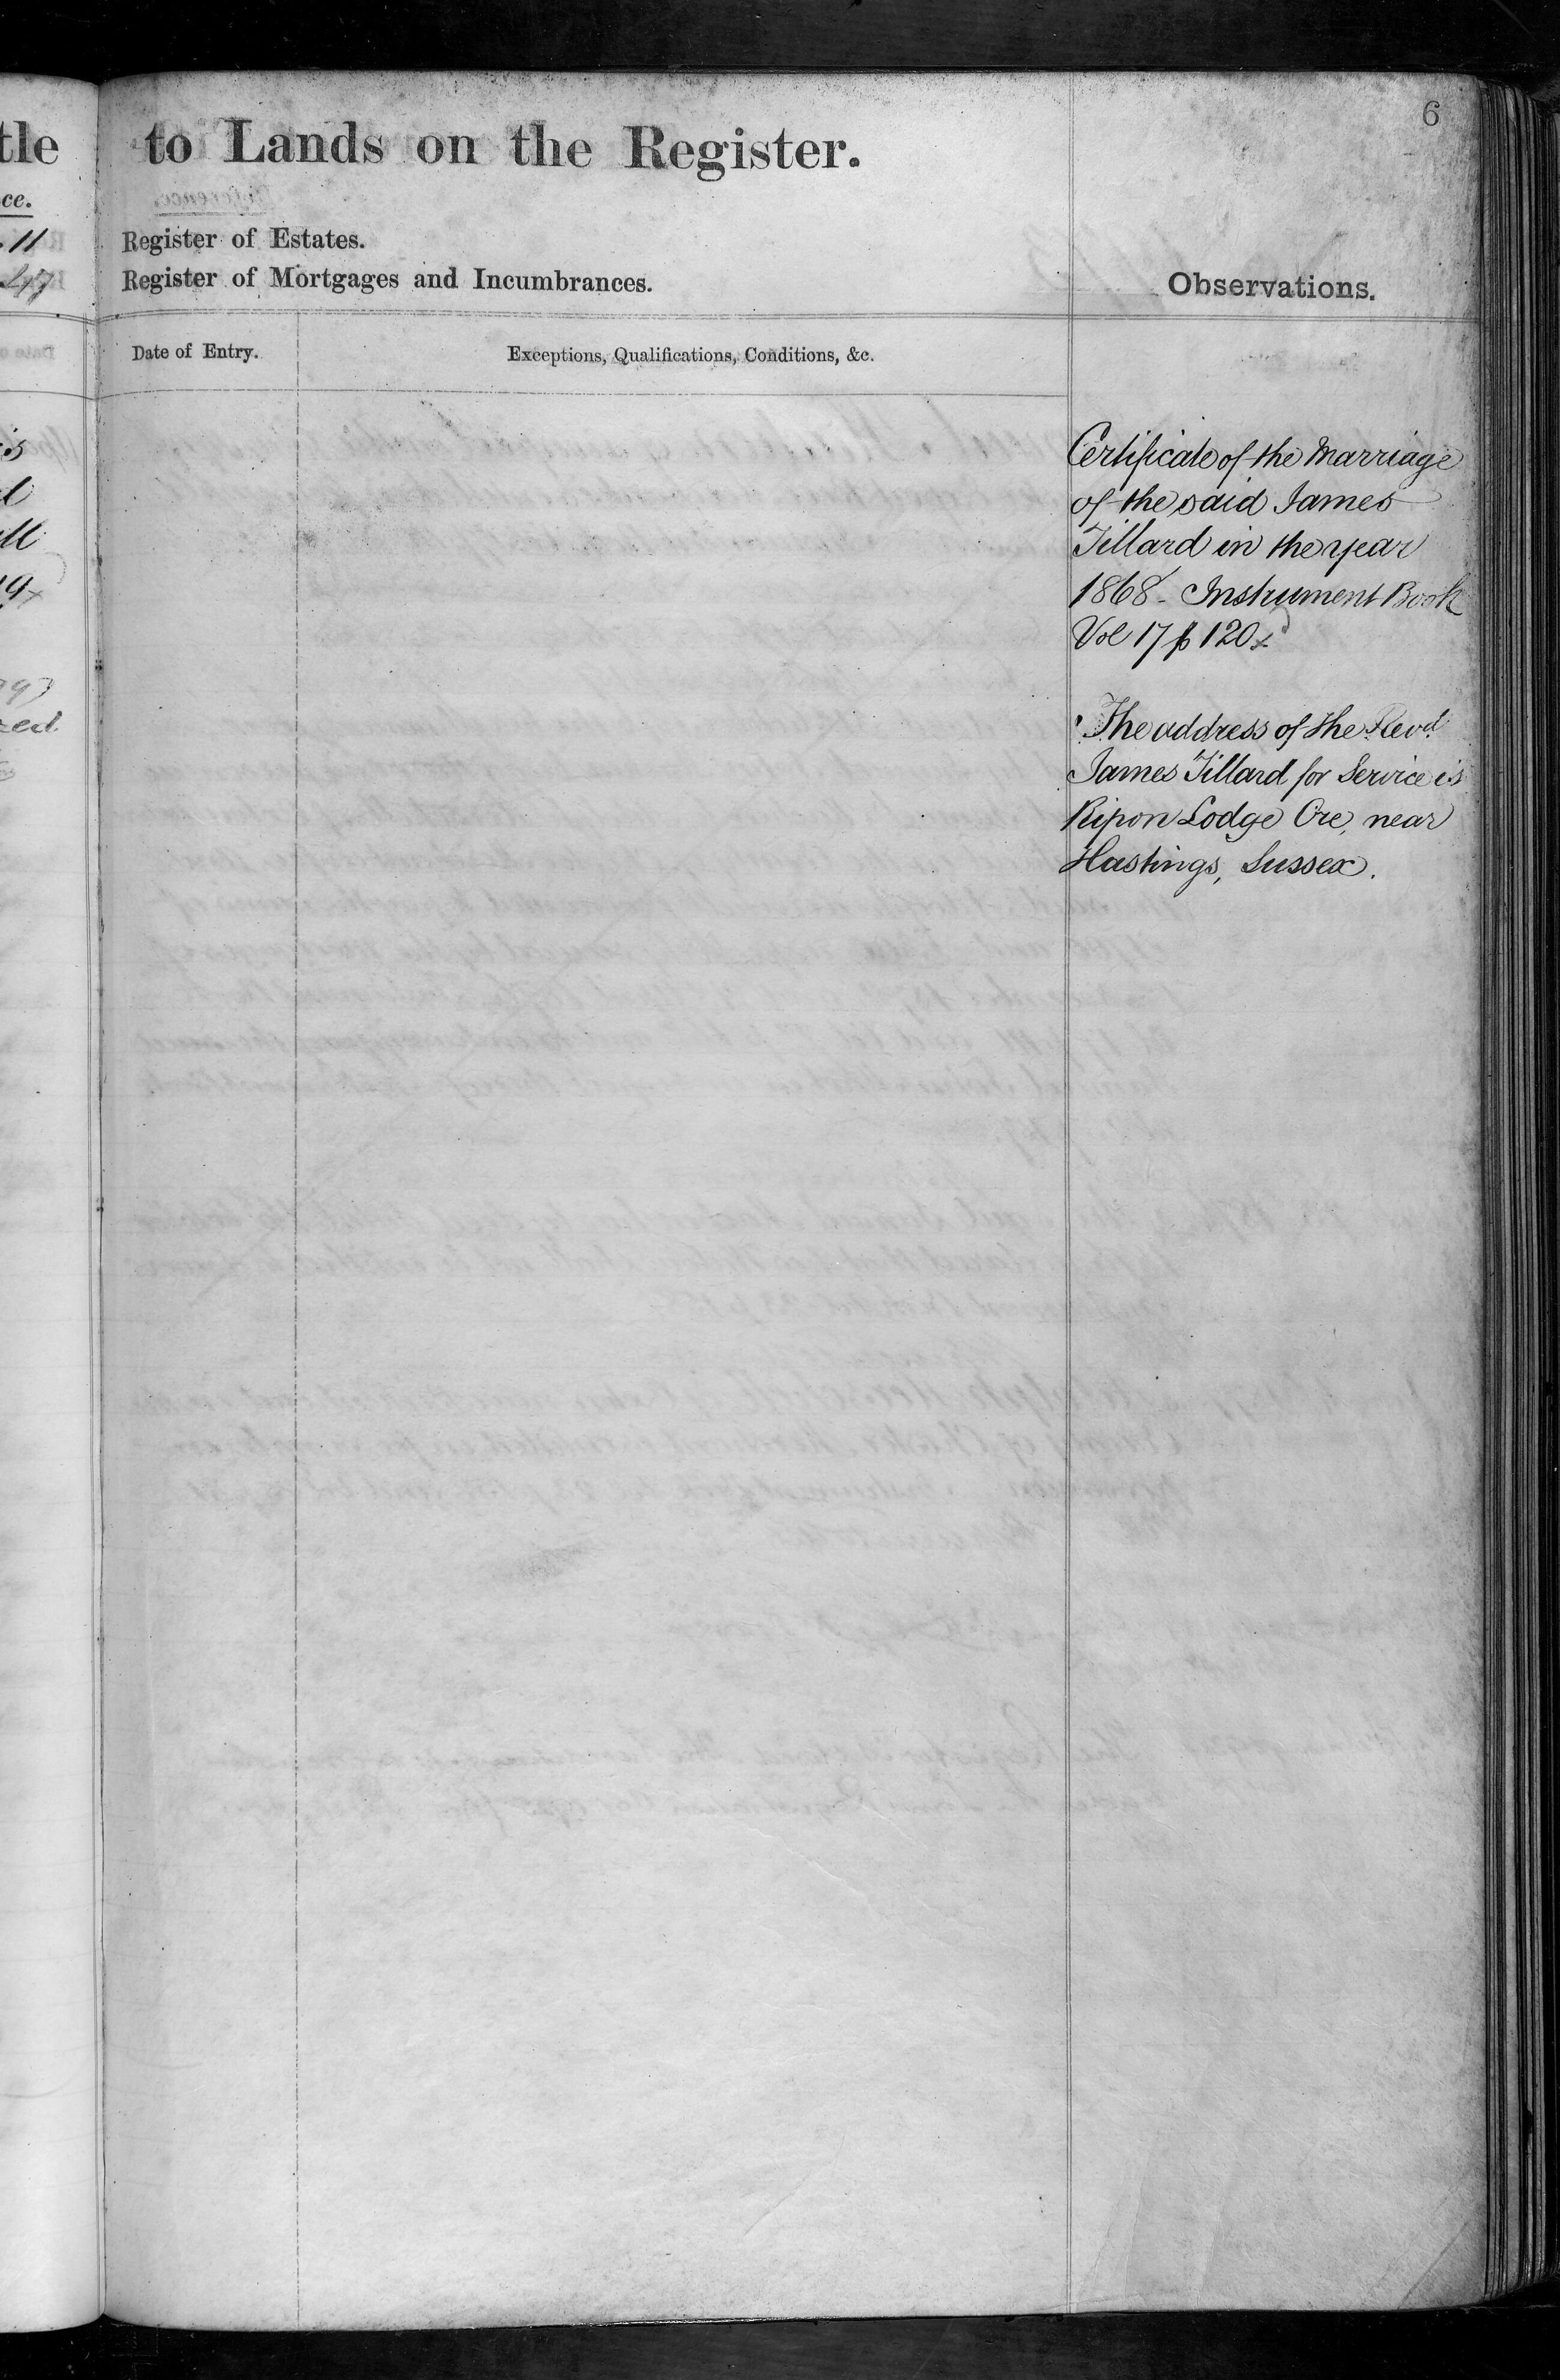 6
tle to Lands on the Register.
ce.
11 Register of Estates.
47 Register of Mortgages and Incumbrances.
Observations.
Date of Entry. Exceptions, Qualifications, Conditions, &c.
Certificate of the Marriage
of the said James
Tillard in the year
1868 - Instrument Book
Vol 17 p 120
The address of the Revd.
James Tillard for Service is
Ripon Lodge Ore, near
Hastings, Sussex.